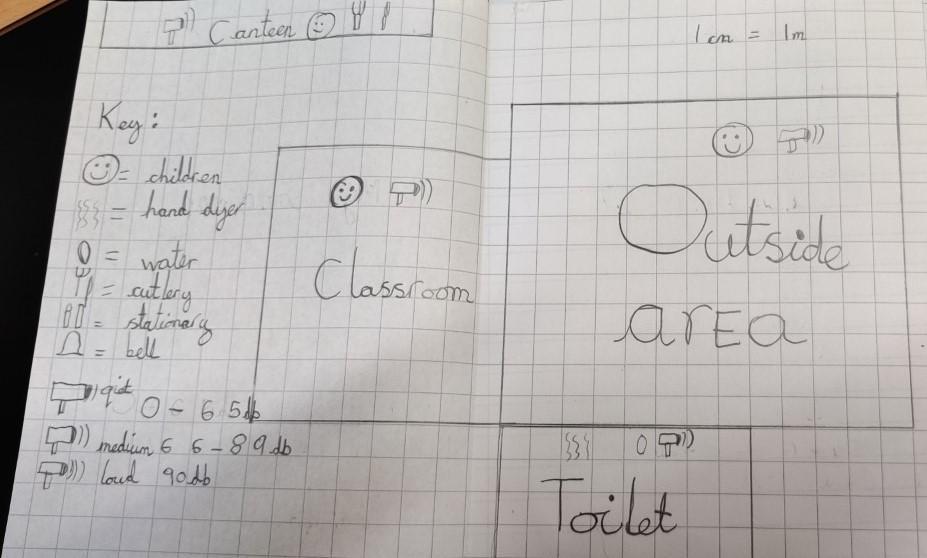 Canteen
1cm = 1m
Key:
= children
= hand dyer
= water
= cutlery
= stationary
= bell
qiet 0 - 65db
medium 66-89db
loud 90db
Classroom
Outside
arEa
Toilet